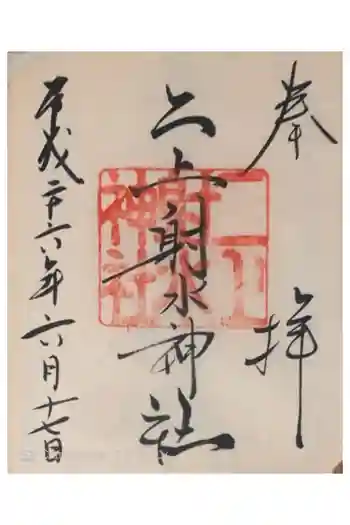 奉拝
二上射水神社
平成二十六年六月十七日
二上
射水
神社